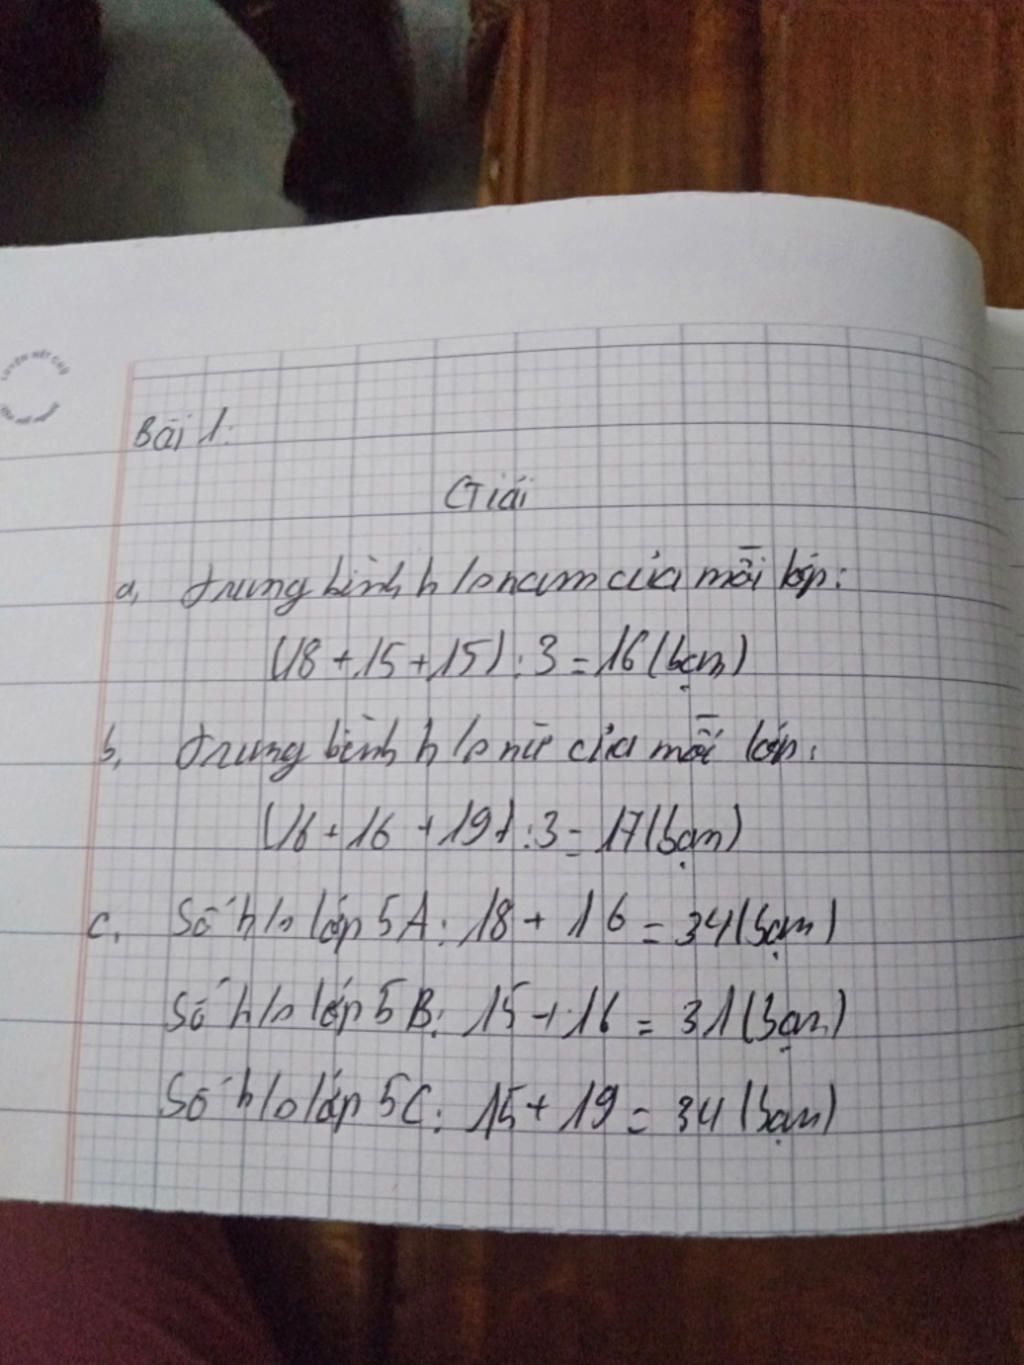 Bài 1:
Giải
a, trung bình h/s nam của mỗi lớp:
(18 + 15 + 15) : 3 = 16 (bạn)
b, trung bình h/s nữ của mỗi lớp:
(16 + 16 + 19) : 3 = 17 (bạn)
c, Số h/s lớp 5A: 18 + 16 = 34 (bạn)
Số h/s lớp 5B: 15 + 16 = 31 (bạn)
Số h/s lớp 5C: 15 + 19 = 34 (bạn)